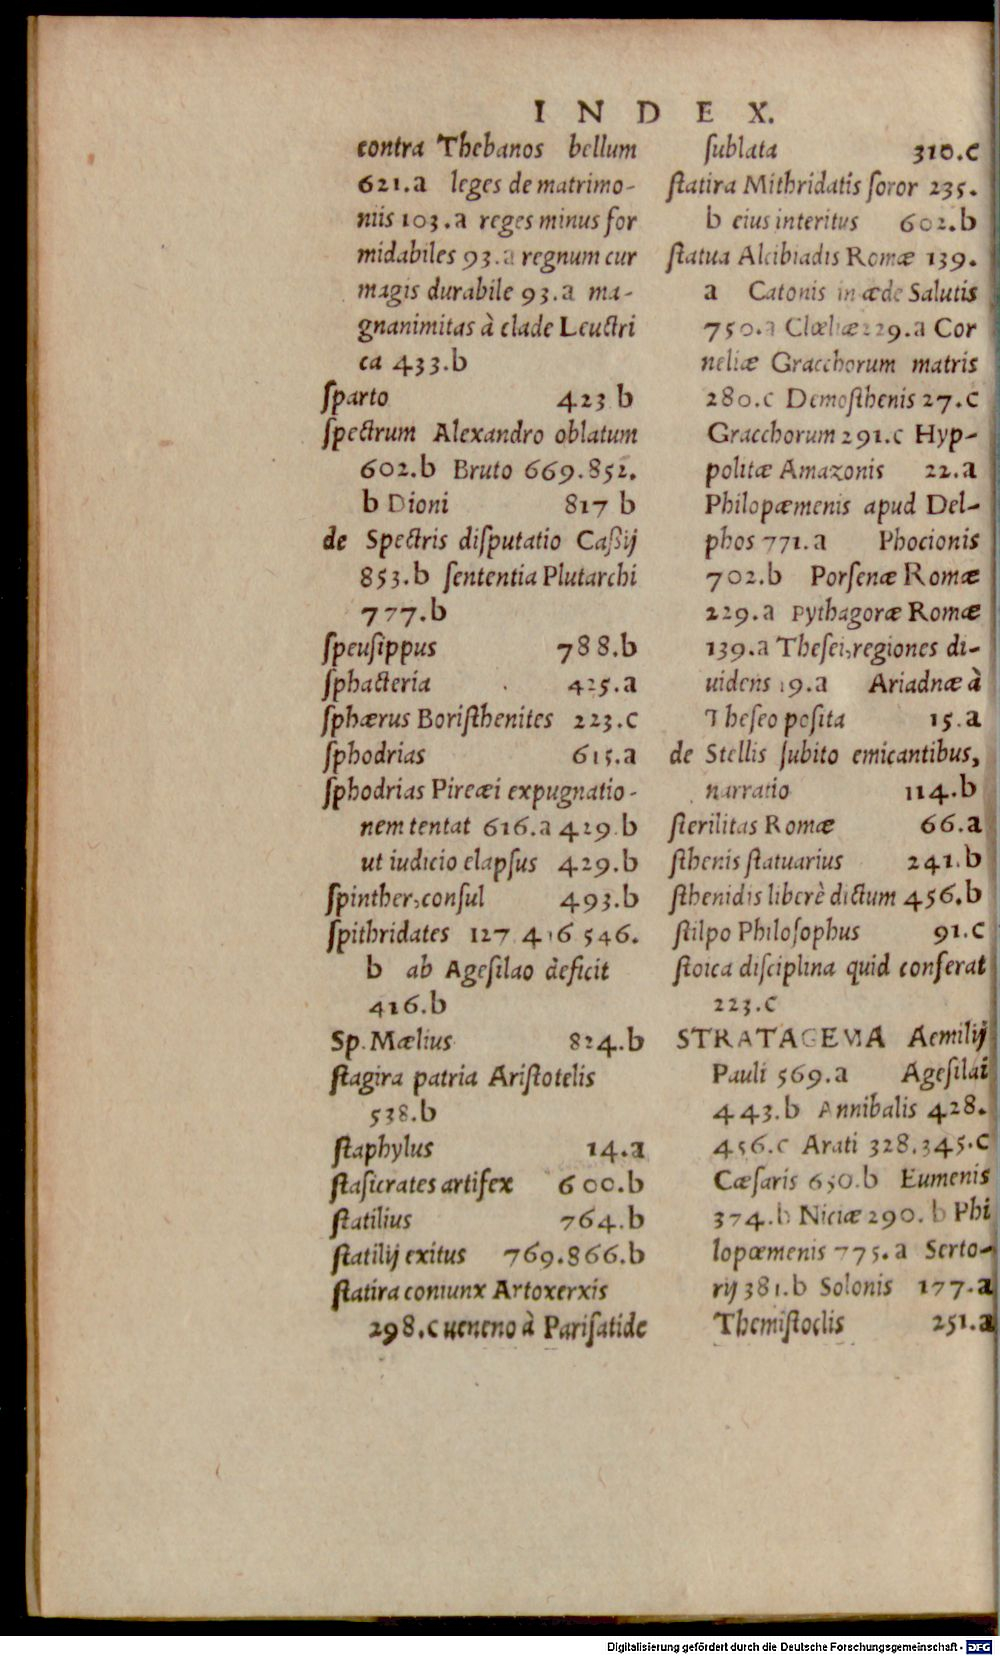 INDEX.
contra Thebanos bellum
621.a leges de matrimo-
niis 103.a reges minus for
midabiles 93.a regnum cur
magis durabile 93.a ma-
gnanimitas à clade Leuctri
ca 433.b
ſparto 423 b
ſpectrum Alexandro oblatum
602.b Bruto 669.852.
b Dioni 817 b
de Spectris diſputatio Caßij
853.b ſententia Plutarchi
777.b
ſpeuſippus 788.b
ſphacteria 425.a
ſphærus Boriſthenites 223.c
ſphodrias 615.a
ſphodrias Piræei expugnatio-
nem tentat 616.a 429.b
ut iudicio elapſus 429.b
ſpinther,conſul 493.b
ſpithridates 127 416 546.
b ab Ageſilao deficit
416.b
Sp. Mælius 824.b
ſtagira patria Ariſtotelis
538.b
ſtaphylus 14.a
ſtaſicrates artifex 600.b
ſtatilius 764.b
ſtatilij exitus 769.866.b
ſtatira coniunx Artoxerxis
298.c ueneno à Pariſatide
ſublata 310.c
ſtatira Mithridatis ſoror 235.
b eius interitus 602.b
ſtatua Alcibiadis Romæ 139.
a Catonis in æde Salutis
750.a Clœliæ 229.a Cor
neliæ Gracchorum matris
280.c Demoſthenis 27.c
Gracchorum 291.c Hyp-
politæ Amazonis 22.a
Philopæmenis apud Del-
phos 771.a Phocionis
702.b Porſenæ Romæ
229.a Pythagoræ Romæ
139.a Theſei,regiones di-
uidens 19.a Ariadnæ à
Theſeo poſita 15.a
de Stellis ſubito emicantibus,
narratio 114.b
ſterilitas Romæ 66.a
ſthenis ſtatuarius 241.b
ſthenidis liberè dictum 456.b
ſtilpo Philoſophus 91.c
ſtoica diſciplina quid conferat
223.c
STRATAGEMA Aemilij
Pauli 569.a Ageſilai
443.b Annibalis 428.
456.c Arati 328.345.c
Cæſaris 650.b Eumenis
374.b Niciæ 290.b Phi
lopæmenis 775.a Serto-
rij 381.b Solonis 177.a
Themiſtoclis 251.a
Digitalisierung gefördert durch die Deutsche Forschungsgemeinschaft - DFG